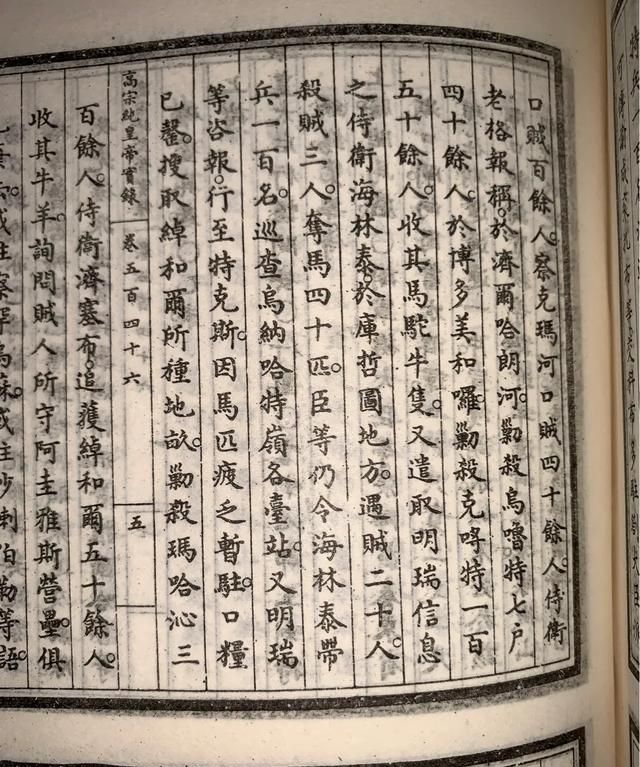 口賊百餘人。察克瑪河口賊四十餘人。侍衛
老格報稱。於濟爾哈朗河。勦殺烏嚕特七戶
四十餘人。於博多美和囉。勦殺克哷特一百
五十餘人。收其馬駝牛隻。又遣取明瑞信息
之侍衛海林泰。於庫哲圖地方。遇賊二十人。
殺賊三人。奪馬四十匹。臣等仍令海林泰帶
兵一百名。巡查烏納哈特嶺各臺站。又明瑞
等咨報。行至特克斯。因馬匹疲乏暫駐。口糧
已罄。搜取綽和爾所種地畝。勦殺瑪哈沁三
高宗純皇帝實錄 卷五百四十六 五
百餘人。侍衛濟塞布。追獲綽和爾五十餘人。
收其牛羊。詢問賊人所守阿圭雅斯營壘。俱